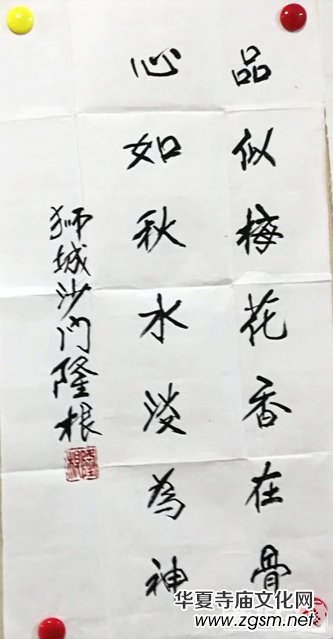 品似梅花香在骨
心如秋水淡為神
狮城沙门隆根
隆根
华夏寺庙文化网
www.zgsm.net